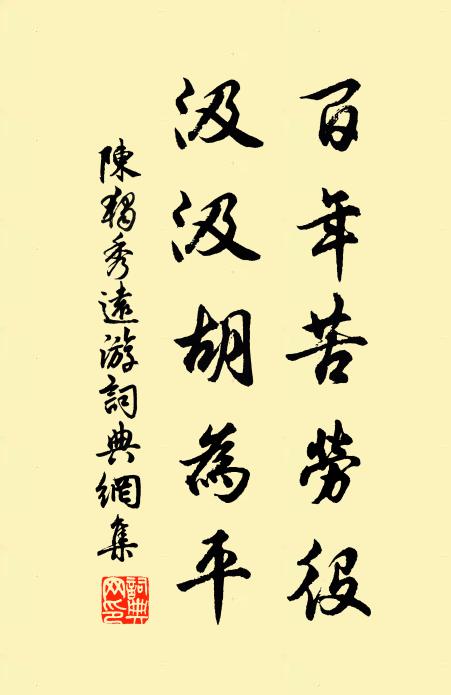 百年苦勞役
汲汲胡為平
陳獨秀遠游詞典網集
詞典網印